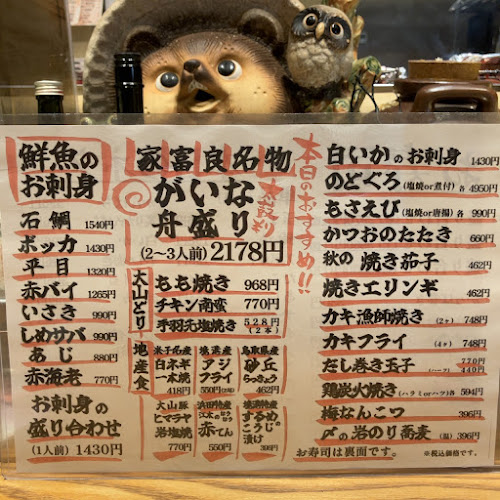 鮮魚の
お刺身
石鯛 1540円
ボッカ 1430円
平目 1320円
赤バイ 1265円
いさき 990円
しめサバ 990円
あじ 880円
赤海老 770円
お刺身の
盛り合わせ
(1人前) 1430円
家富良名物
がいな
舟盛り
(2〜3人前) 2178円
大山どり
もも焼き 968円
チキン南蛮 770円
手羽元塩焼き 528円
(2本)
地産食
米子名産
白ネギ
一本焼
418円
境港産
アジ
フライ
550円
鳥取県産
砂丘
らっきょう
462円
大山豚
ヒマラヤ
岩塩焼
770円
浜田特産
赤てん
550円
境港産
するめ
こうじ
漬け
396円
本日のおすすめ!!
白いかのお刺身 1430円
のどぐろ(塩焼or煮付)各4950円
もさえび(塩焼or唐揚)各990円
かつおのたたき 660円
秋の焼き茄子 462円
焼きエリンギ 462円
カキ漁師焼き(2ヶ) 748円
カキフライ(4ヶ) 748円
だし巻き玉子 770円
440円
鶏炭火焼き(ハラミorハツ)各594円
梅なんこつ 396円
〆の岩のり蕎麦(温) 396円
お寿司は裏面です。
※税込価格です。